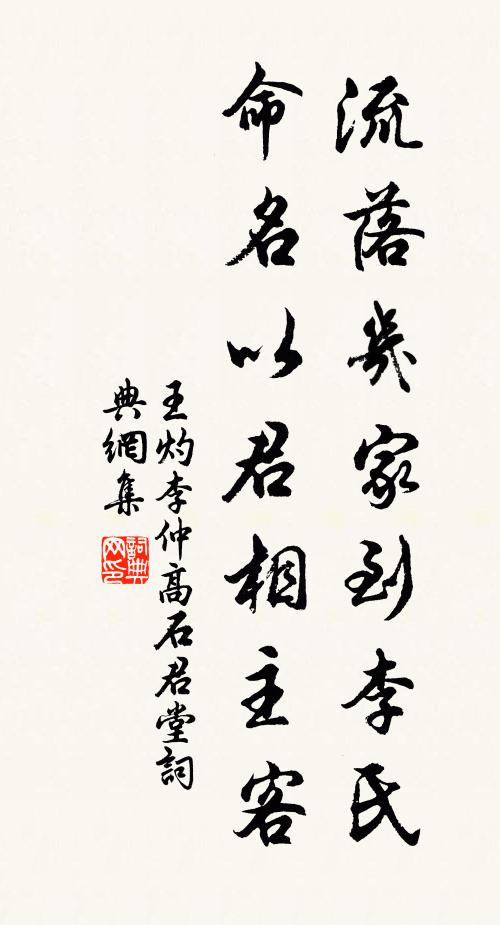 流落幾家到李氏
命名以君相主客
王灼李仲高石君堂詞
典網集
詞典
网印